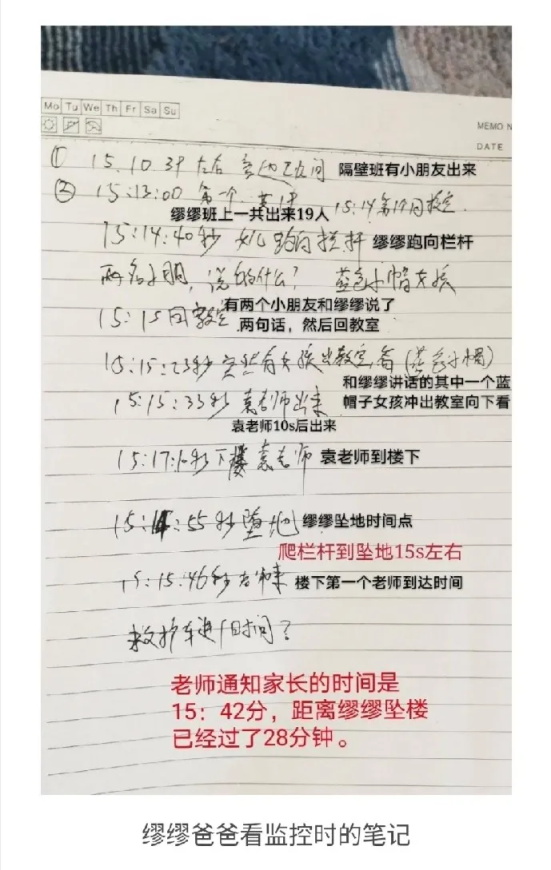 Mo Tu We Th Fr Sa Su
MEMO N
DATE
① 15.10.39 左右 隔壁班有小朋友出来
② 15:13:00 第一个
缪缪班上一共出来19人 15:14第19回教室
15:14:40秒 女儿跑向栏杆 缪缪跑向栏杆
两名小朋，说的什么？ 蓝色小帽女孩
15:15回教室 有两个小朋友和缪缪说了
两句话，然后回教室
15:15:23秒 女孩出教室看（蓝色小帽）
和缪缪讲话的其中一个蓝
15:15:33秒 袁老师出来 帽子女孩冲出教室向下看
袁老师10s后出来
15:17:10秒下楼袁老师 袁老师到楼下
15:14:55秒坠地 缪缪坠地时间点
爬栏杆到坠地15s左右
15:15:46秒 楼下第一个老师到达时间
救护车进入时间？
老师通知家长的时间是
15：42分，距离缪缪坠楼
已经过了28分钟。
缪缪爸爸看监控时的笔记